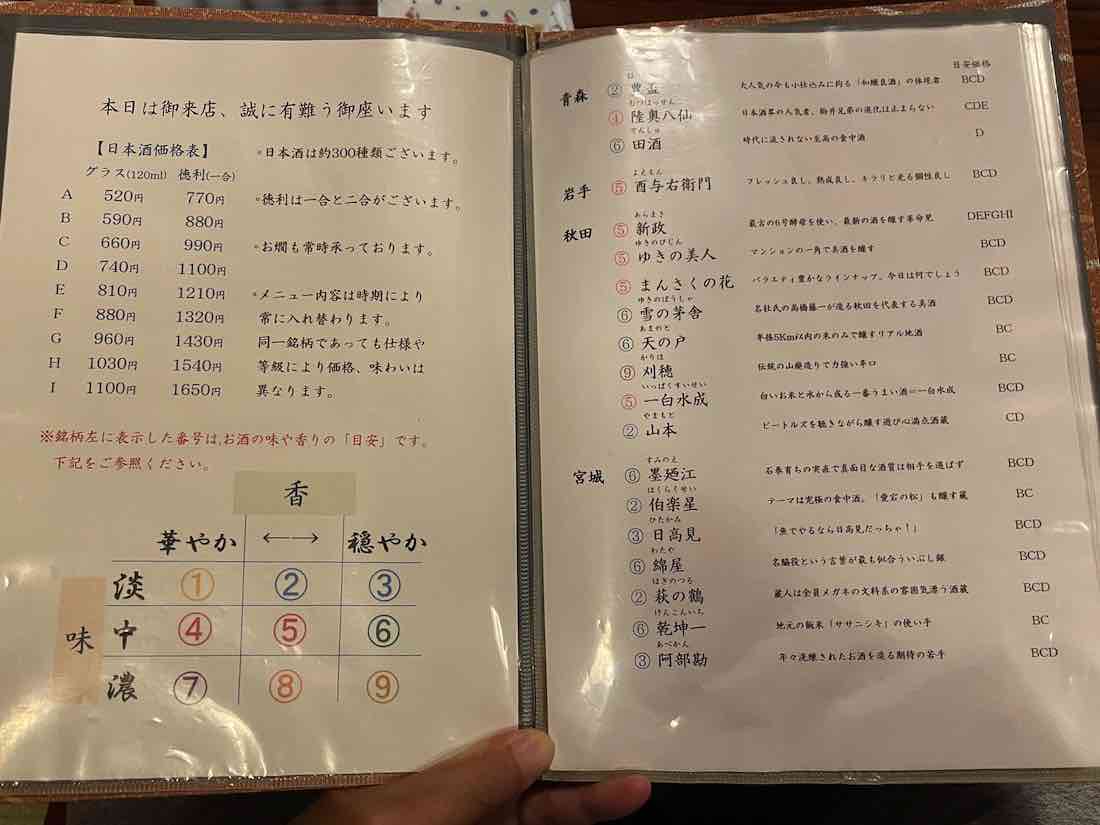 本日は御来店、誠に有難う御座います
【日本酒価格表】
グラス(120ml) 徳利(一合)
A 520円 770円
B 590円 880円
C 660円 990円
D 740円 1100円
E 810円 1210円
F 880円 1320円
G 960円 1430円
H 1030円 1540円
I 1100円 1650円
*日本酒は約300種類ございます。
*徳利は一合と二合がございます。
*お燗も常時承っております。
*メニュー内容は時期により
常に入れ替わります。
同一銘柄であっても仕様や
等級により価格、味わいは
異なります。
※銘柄左に表示した番号は,お酒の味や香りの「目安」です。
下記をご参照ください。
香
華やか ←→ 穏やか
味
淡 ① ② ③
中 ④ ⑤ ⑥
濃 ⑦ ⑧ ⑨
目安価格
青森 ② 豊盃 大人気の今も小仕込みに拘る「和醸良酒」の体現者 BCD
むつはっせん
④ 陸奥八仙 日本酒界の人気者、駒井兄弟の進化は止まらない CDE
でんしゅ
⑥ 田酒 時代に流されない至高の食中酒 D
よえもん
岩手 ⑤ 酉与右衛門 フレッシュ良し、熟成良し、キラリと光る個性良し BCD
あらまさ
秋田 ⑤ 新政 最古の6号酵母を使い、最新の酒を醸す革命児 DEFGHI
ゆきのびじん
⑤ ゆきの美人 マンションの一角で美酒を醸す BCD
⑤ まんさくの花 バラエティ豊かなラインナップ、今日は何でしょう BCD
ゆきのぼうしゃ
⑥ 雪の茅舎 名杜氏の高橋藤一が造る秋田を代表する美酒 BCD
あまのと
⑥ 天の戸 半径5Km以内の米のみで醸すリアル地酒 BC
かりほ
⑨ 刈穂 伝統の山廃造りで力強い辛口 BC
いっぱくすいせい
⑤ 一白水成 白いお米と水から成る一番うまい酒=一白水成 BCD
やまもと
② 山本 ビートルズを聴きながら醸す遊び心満点酒蔵 CD
すみのえ
宮城 ⑥ 墨廼江 石巻育ちの実直で真面目な酒質は相手を選ばず BCD
はくらくせい
② 伯楽星 テーマは究極の食中酒。「愛宕の松」も醸す蔵 BC
ひたかみ
③ 日高見 「魚でやるなら日高見だっちゃ!」 BCD
わたや
⑥ 綿屋 名脇役という言葉が最も似合ういぶし銀 BCD
はぎのつる
② 萩の鶴 蔵人は全員メガネの文科系の雰囲気漂う酒蔵 BCD
けんこんいち
⑥ 乾坤一 地元の飯米「ササニシキ」の使い手 BC
あべかん
③ 阿部勘 年々洗練されたお酒を造る期待の若手 BCD